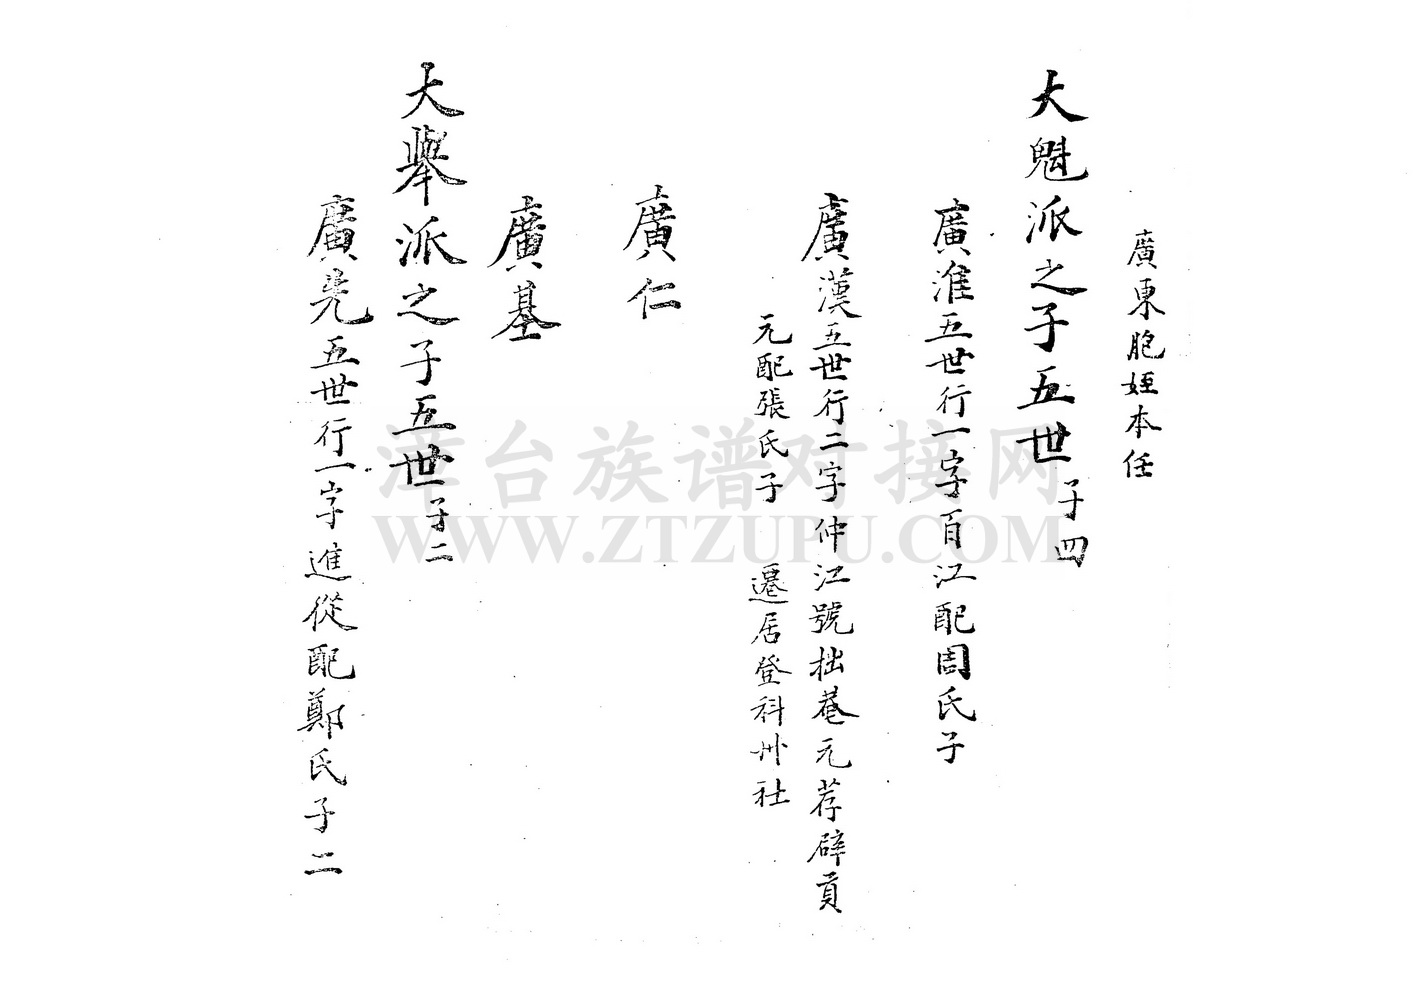 廣東胞姪本任
大魁派之子五世子四
廣淮五世行一字百江配周氏子
廣漢五世行二字仲江號拙菴元荐辟貢
元配張氏子 遷居登科州社
廣仁
廣基
大舉派之子五世子二
廣先五世行一字進從配鄭氏子二
漳台族谱对接网
WWW.ZTZUPU.COM